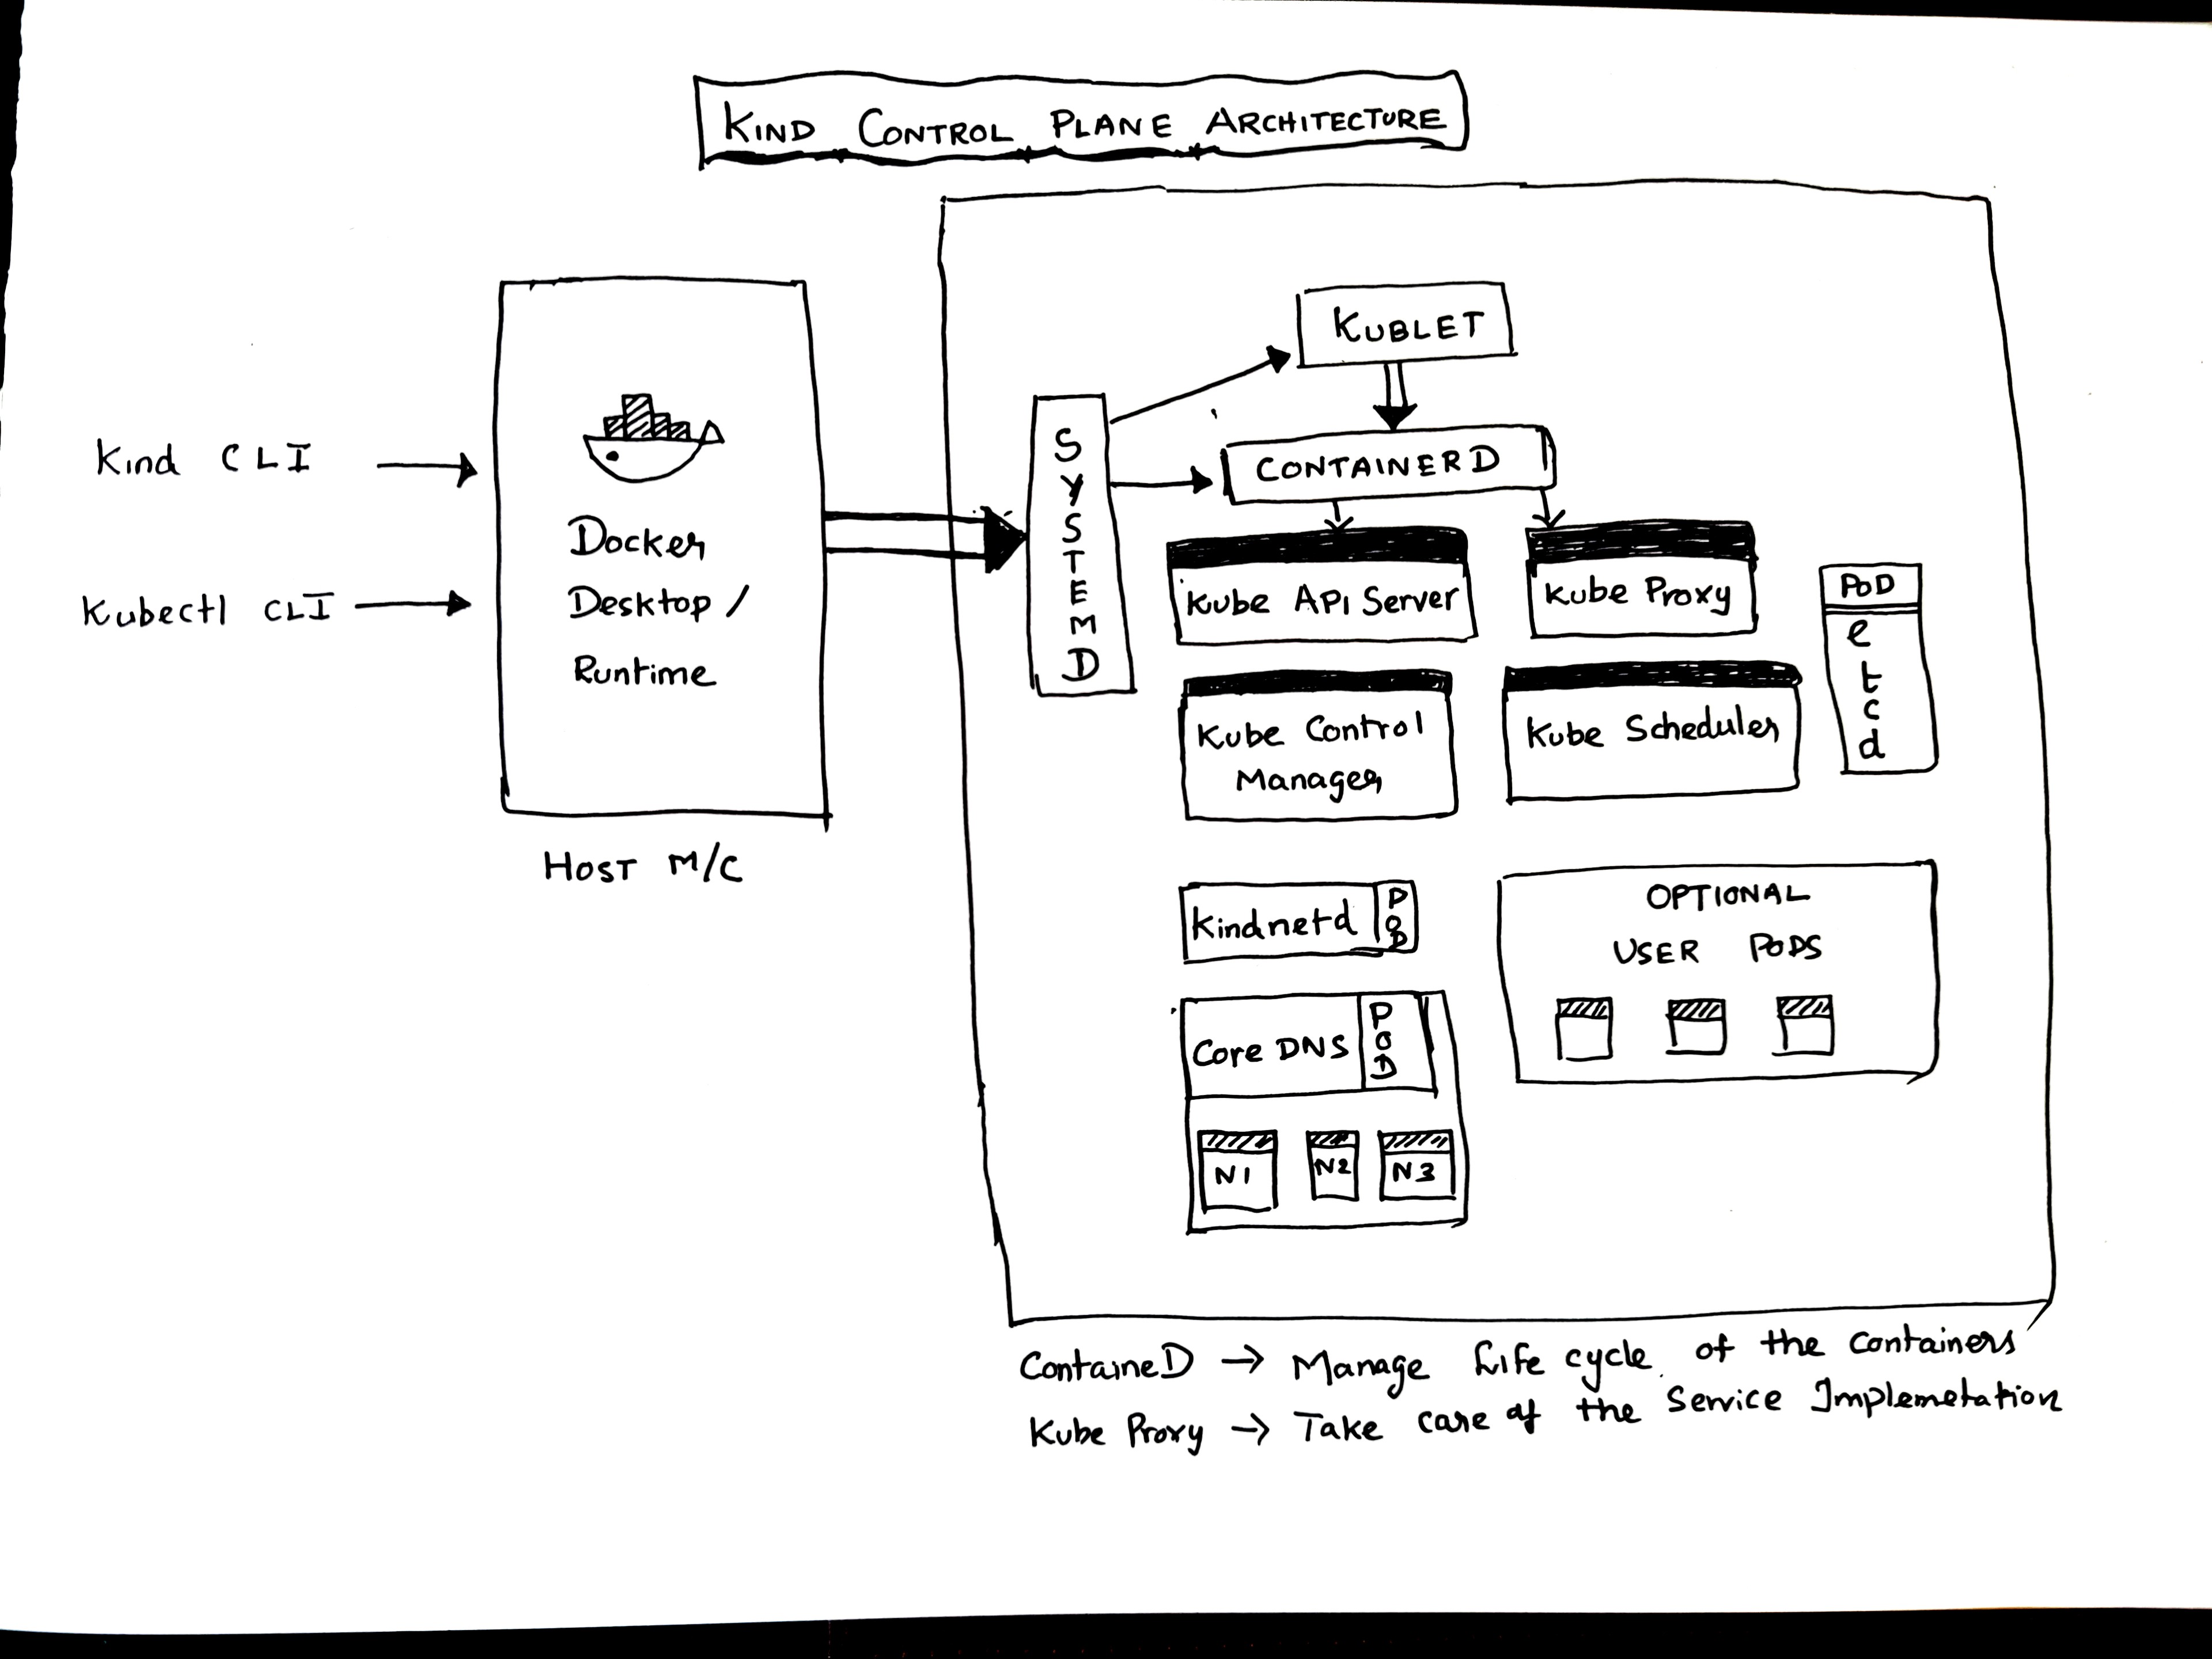 KIND CONTROL PLANE ARCHITECTURE
Kind CLI
Kubectl CLI
Docker
Desktop /
Runtime
HOST M/C
SYSTEMD
KUBLET
CONTAINERD
Kube API Server
Kube Proxy
Kube Control
Manager
Kube Scheduler
POD
etcd
Kindnetd
POD
Core DNS
POD
N1
N2
N3
OPTIONAL
USER PODS
ContaineD → Manage Life cycle of the Containers
Kube Proxy → Take care of the Service Implemetation